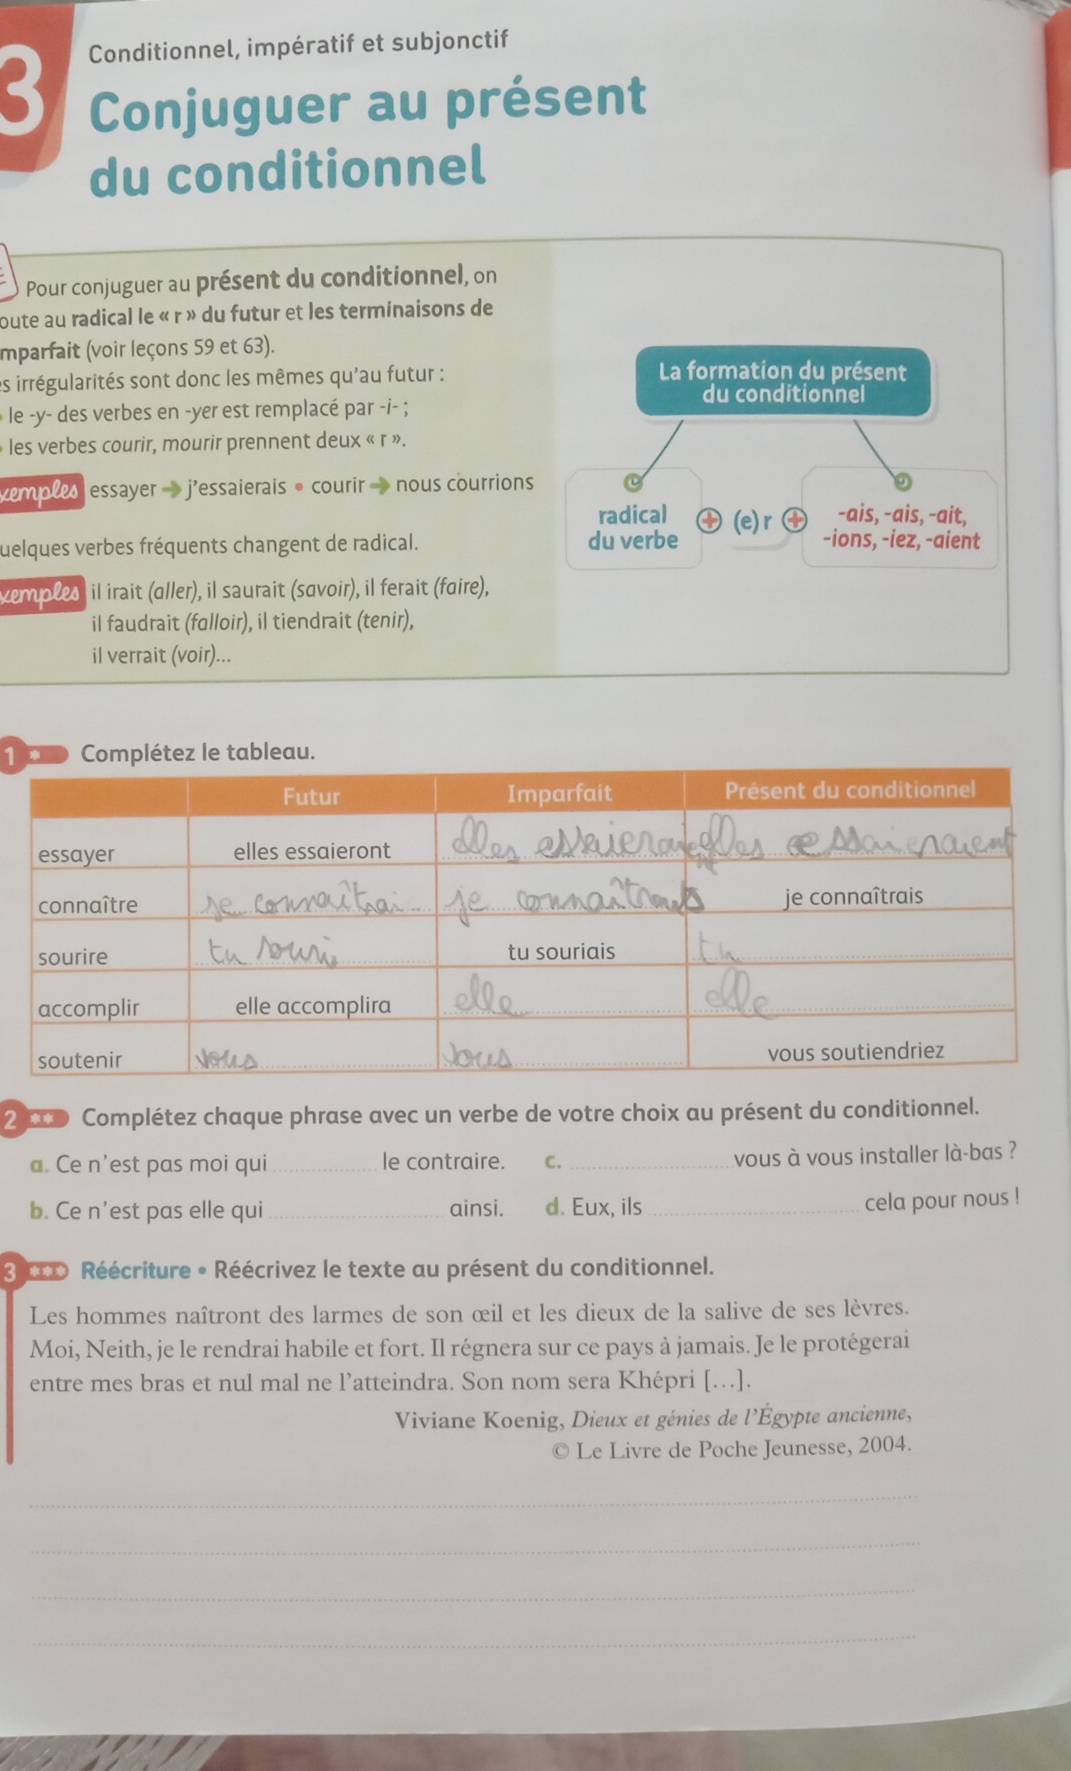 3
Conditionnel, impératif et subjonctif
Conjuguer au présent
du conditionnel
Pour conjuguer au présent du conditionnel, on
oute au radical le « r » du futur et les terminaisons de
mparfait (voir leçons 59 et 63).
es irrégularités sont donc les mêmes qu'au futur :
• le -y- des verbes en -yer est remplacé par -i- ;
• les verbes courir, mourir prennent deux « r ».
xemples essayer → j'essaierais • courir → nous courrions
uelques verbes fréquents changent de radical.
xemples il irait (aller), il saurait (savoir), il ferait (faire),
il faudrait (falloir), il tiendrait (tenir),
il verrait (voir)...
La formation du présent
du conditionnel
radical
du verbe
+ (e) r +
-ais, -ais, -ait,
-ions, -iez, -aient
1 * Complétez le tableau.
Futur Imparfait Présent du conditionnel
essayer elles essaieront elles essaieraient elles essaieraient
connaître je connaîtrai je connaîtrais je connaîtrais
sourire tu souri tu souriais tu
accomplir elle accomplira elle elle
soutenir vous vous vous soutiendriez
2 ** Complétez chaque phrase avec un verbe de votre choix au présent du conditionnel.
a. Ce n'est pas moi qui le contraire. c. vous à vous installer là-bas ?
b. Ce n'est pas elle qui ainsi. d. Eux, ils cela pour nous !
3 *** Réécriture • Réécrivez le texte au présent du conditionnel.
Les hommes naîtront des larmes de son œil et les dieux de la salive de ses lèvres.
Moi, Neith, je le rendrai habile et fort. Il régnera sur ce pays à jamais. Je le protégerai
entre mes bras et nul mal ne l'atteindra. Son nom sera Khépri [...].
Viviane Koenig, Dieux et génies de l'Égypte ancienne,
© Le Livre de Poche Jeunesse, 2004.